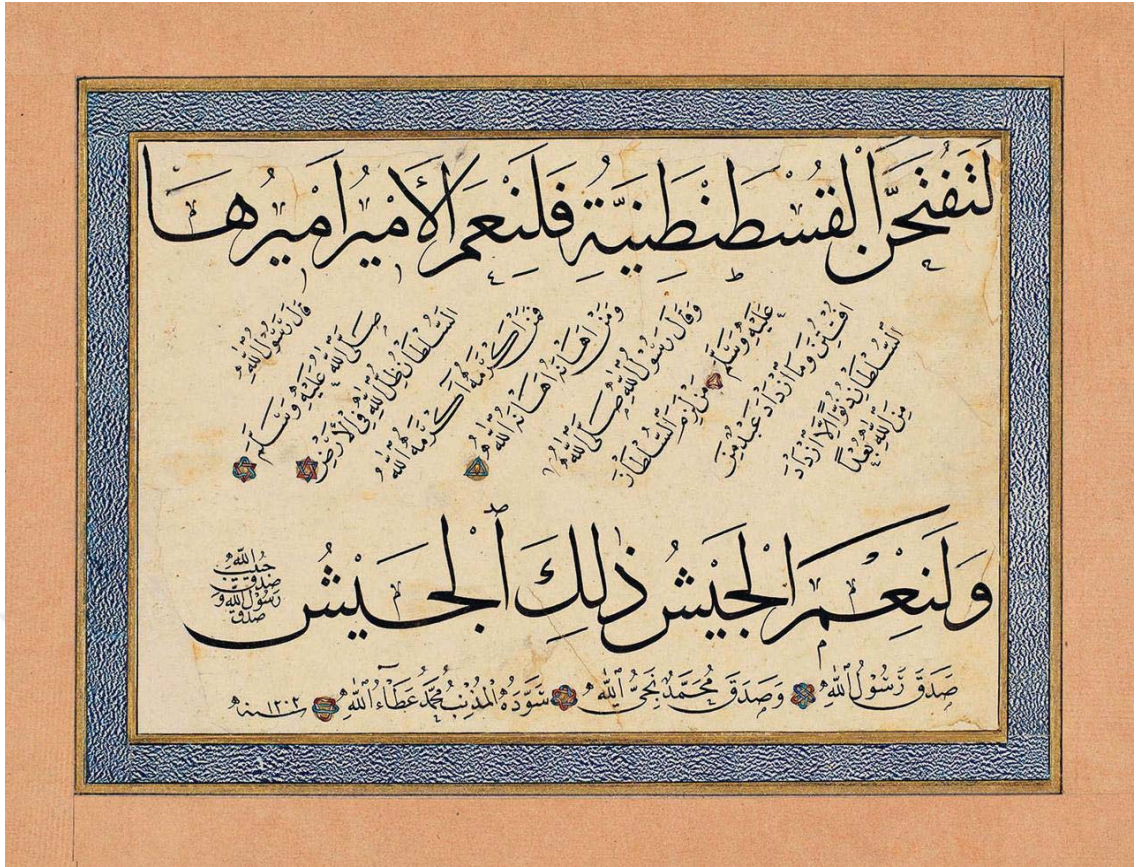 لَتَفْتَحُنَّ الْقُسْطَنْطِنِيَّةِ فَلَنِعْمَ الْأَمِيرُ اَمِيرُهَا
قَالَ رَسُولُ اللّٰهِ
صَلَّى اللّٰهُ عَلَيْهِ وَسَلَّمَ
السُّلْطَانُ ظِلُّ اللّٰهِ فِي الْأَرْضِ
فَمَنْ اَكْرَمَهُ اَكْرَمَهُ اللّٰهُ
وَمَنْ اَهَانَهُ اَهَانَهُ اللّٰهُ
وَقَالَ رَسُولُ اللّٰهِ صَلَّى اللّٰهُ
عَلَيْهِ وَسَلَّمَ
مَنْ لَزِمَ السُّلْطَانَ
افْتُتِنَ وَمَا ازْدَادَ عَبْدٌ مِنَ
السُّلْطَانِ دُنُوًّا اِلَّا ازْدَادَ
مِنَ اللّٰهِ بُعْدًا
وَلَنِعْمَ الْجَيْشُ ذٰلِكَ الْجَيْشُ
صدق
رسول الله و
صدق
صَدَقَ رَسُولُ اللّٰهِ وَصَدَقَ مُحَمَّدٌ نَجِيُّ اللّٰهِ سَوَّدَهُ الْمُذْنِبُ مُحَمَّدْ عَطَاءُ اللّٰهِ سنه ١٢٠٢